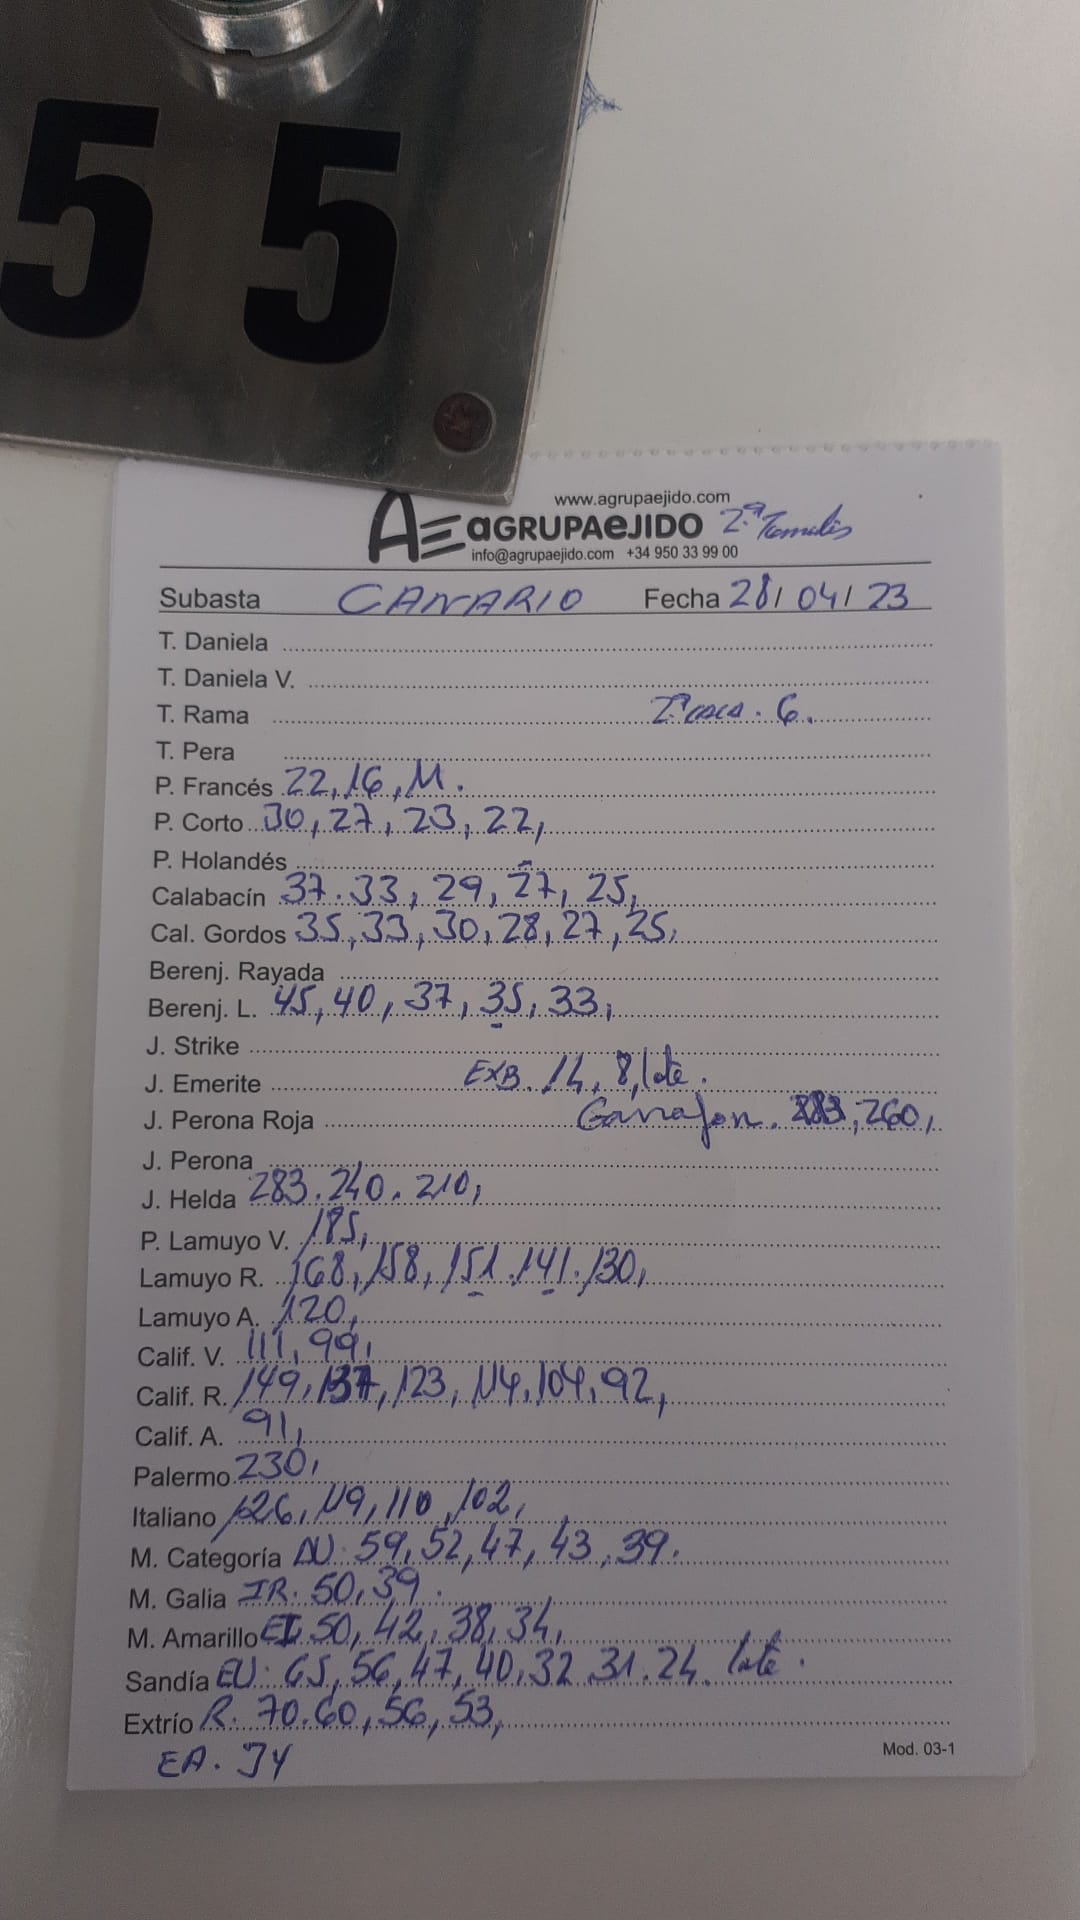 55
www.agrupaejido.com
AE aGRUPAeJIDO 2ª
info@agrupaejido.com +34 950 33 99 00
Subasta CANARIO Fecha 28/ 04/ 23
T. Daniela
T. Daniela V.
T. Rama 2ª 6.
T. Pera
P. Francés 22, 16, M.
P. Corto 30, 27, 23, 22,
P. Holandés
Calabacín 37. 33, 29, 27, 25,
Cal. Gordos 35, 33, 30, 28, 27, 25,
Berenj. Rayada
Berenj. L. 45, 40, 37, 35, 33,
J. Strike
J. Emerite EXB. 14, 8, lote.
J. Perona Roja Garrafon. 283, 260,
J. Perona
J. Helda 283. 240. 210,
P. Lamuyo V. 185,
Lamuyo R. 168, 158, 151. 141. 130,
Lamuyo A. 120,
Calif. V. 111, 99,
Calif. R. 149, 137, 123, 114, 104, 92,
Calif. A. 91,
Palermo 230,
Italiano 126, 119, 110, 102,
M. Categoría AU. 59, 52, 47, 43, 39.
M. Galia IR. 50, 39.
M. Amarillo 50, 42, 38, 34,
Sandía EU. 65, 56, 47, 40, 32 31. 24. lote.
Extrío R. 70. 60, 56, 53,
EA. 34
Mod. 03-1